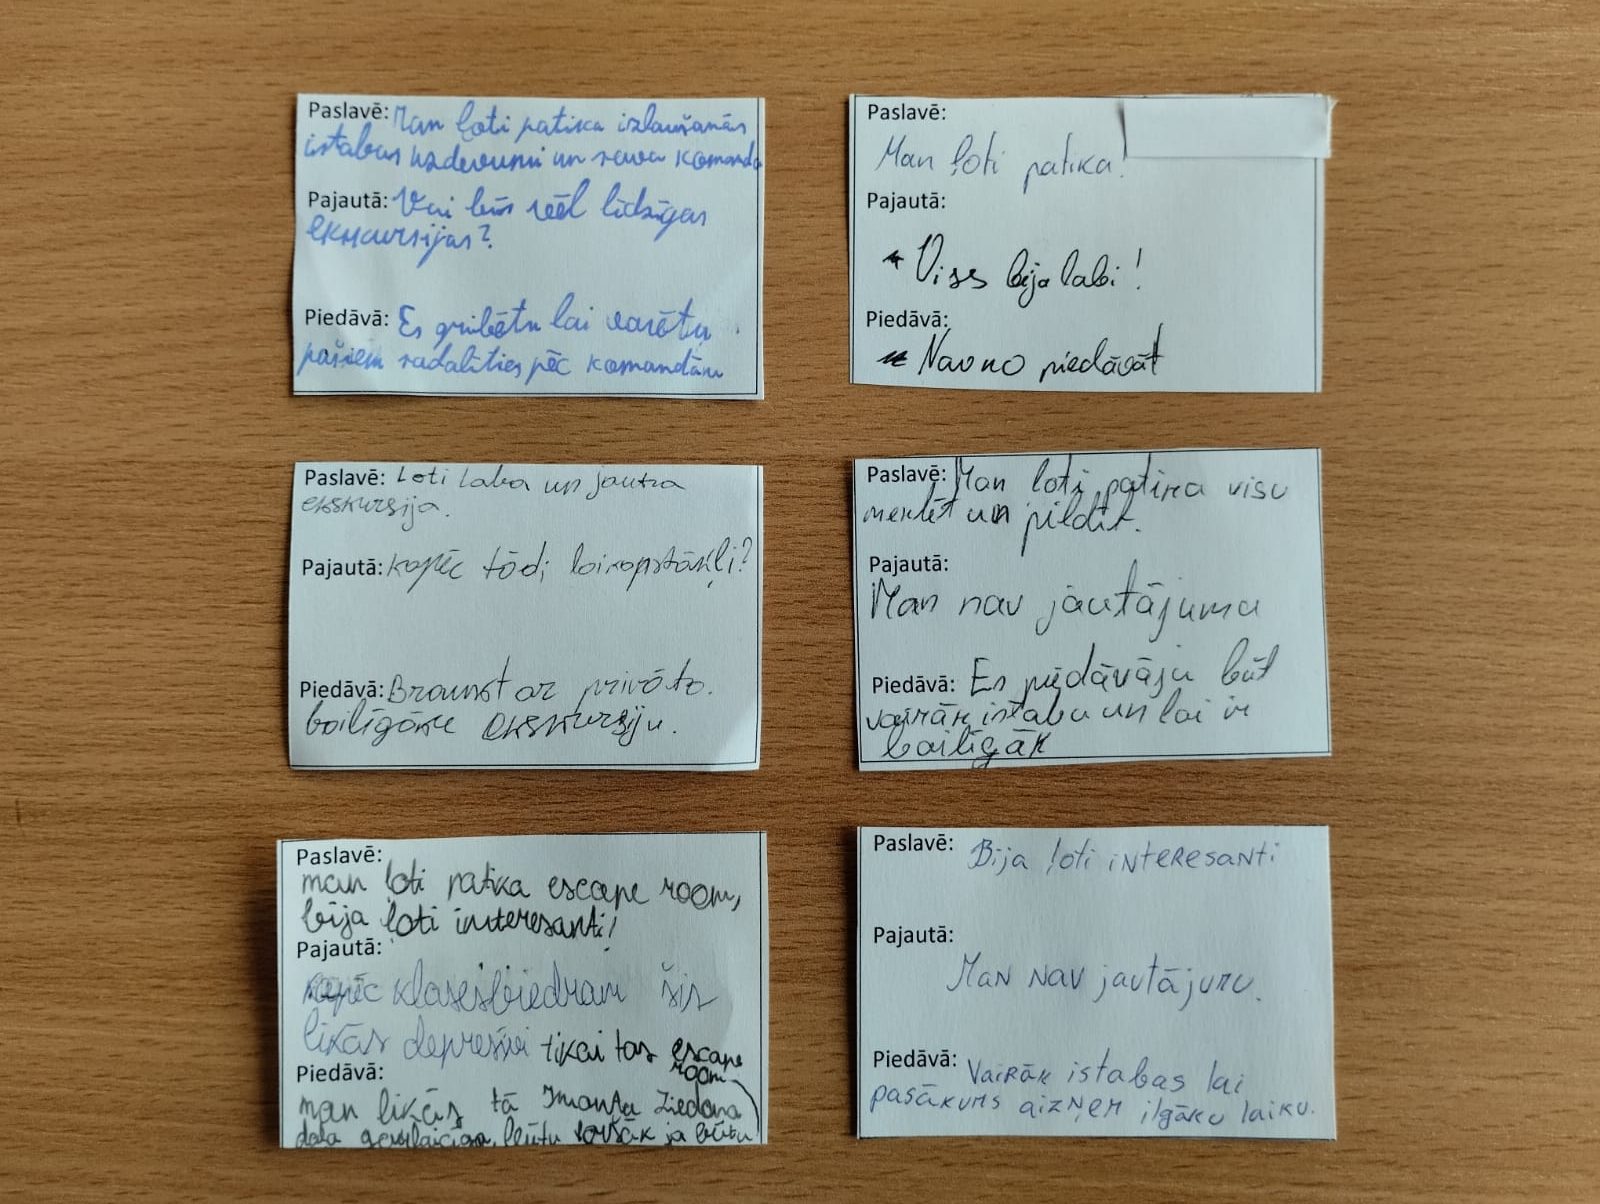 Paslavē: Man ļoti patika izlaušanās
istabas uzdevumi un sava komanda
Pajautā: Vai būs vēl līdzīgas
ekskursijas?
Piedāvā: Es gribētu lai varētu
pašiem sadalīties pēc komandām
Paslavē:
Man ļoti patika!
Pajautā:
Viss bija labi!
Piedāvā:
Nav no piedāvāt
Paslavē: Loti laba un jautra
ekskursija.
Pajautā: Kapēc tādi laikapstākļi?
Piedāvā: Braukt ar privāto.
bailīgāke ekskursiju.
Paslavē: Man loti patika visu
meklēt un pildīt.
Pajautā:
Man nav jautājuma
Piedāvā: Es piedāvāju būt
vairāk istabu un lai ir
bailīgāk
Paslavē:
man ļoti patika escape room,
bija ļoti interesanti!
Pajautā:
kapēc klasesbiedram šis
likās depresīvi tikai tas escape
room
Piedāvā:
man likās tā Imanta Ziedoņa
daļa garlaicīga, būtu labāk ja būtu
Paslavē: Bija ļoti interesanti
Pajautā:
Man nav jautājumu.
Piedāvā: Vairāk istabas lai
pasākums aizņem ilgāku laiku.